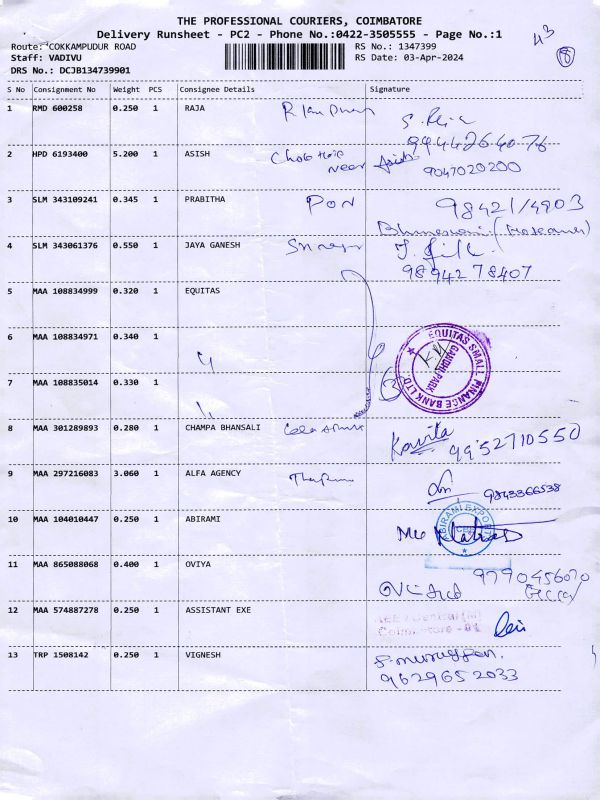 THE PROFESSIONAL COURIERS, COIMBATORE
Delivery Runsheet - PC2 - Phone No.:0422-3505555 - Page No.:1
Route: COKKAMPUDUR ROAD
RS No.: 1347399
Staff: VADIVU
RS Date: 03-Apr-2024
DRS No.: DCJB134739901
43
18
S No Consignment No Weight PCS Consignee Details Signature
1 RMD 600258 0.250 1 RAJA
9944264076
2 HPD 6193400 5.200 1 ASISH
near
9047020200
3 SLM 343109241 0.345 1 PRABITHA PON
98421/4903
4 SLM 343061376 0.550 1 JAYA GANESH
9894278407
5 MAA 108834999 0.320 1 EQUITAS
6 MAA 108834971 0.340 1 "
EQUITAS SMALL FINANCE BANK LTD
GANDHI PARK
7 MAA 108835014 0.330 1 "
3
8 MAA 301289893 0.280 1 CHAMPA BHANSALI
Kavita
9952710550
9 MAA 297216083 3.060 1 ALFA AGENCY
9843366538
10 MAA 104010447 0.250 1 ABIRAMI
ABIRAMI EXPO
CBE
11 MAA 865088068 0.400 1 OVIYA
9790456070
12 MAA 574887278 0.250 1 ASSISTANT EXE
13 TRP 1508142 0.250 1 VIGNESH
9629652033